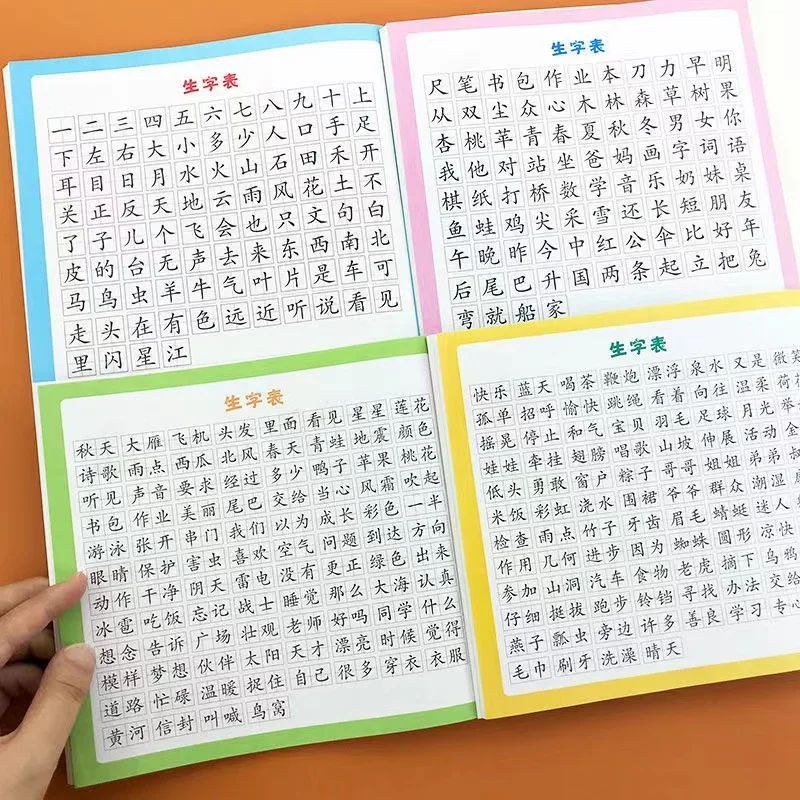 生字表
一 二 三 四 五 六 七 八 九 十 上
下 左 右 大 小 多 少 人 口 手 足
耳 目 日 月 水 火 山 石 田 禾 开
关 正 反 天 地 云 雨 风 花 土 不
了 子 儿 个 飞 会 也 只 文 句 白
皮 的 台 无 声 去 来 东 西 南 北
马 鸟 虫 羊 牛 气 叶 片 是 车 可
走 头 在 有 色 远 近 听 说 看 见
里 闪 星 江
生字表
尺 笔 书 包 作 业 本 刀 力 早 明
从 双 尘 众 心 木 林 森 草 树 果
杏 桃 苹 青 春 夏 秋 冬 男 女 你
我 他 对 站 坐 爸 妈 画 字 词 语
棋 纸 打 桥 数 学 音 乐 奶 妹 桌
鱼 蛙 鸡 尖 采 雪 还 长 短 朋 友
午 晚 昨 今 中 红 公 伞 比 好 年
后 尾 巴 升 国 两 条 起 立 把 兔
弯 就 船 家
生字表
秋天 大雁 飞机 头发 里面 看见 星星 莲花
诗歌 雨点 西瓜 北风 春天 青蛙 地震 颜色
听见 声音 要求 经过 多少 鸭子 苹果 桃花
书包 作业 美丽 尾巴 交给 当心 风霜 吹起
游泳 张开 串门 我们 以为 成长 彩色 一半
眼睛 保护 害虫 喜欢 空气 问题 到达 方向
动作 干净 阴天 雷电 没有 更正 绿色 出来
冰雹 吃饭 忘记 战士 睡觉 那么 大海 认真
想念 告诉 广场 壮观 老师 好吗 同学 什么
模样 梦想 伙伴 太阳 天才 漂亮 时候 觉得
道路 忙碌 温暖 捉住 自己 很多 穿衣 衣服
黄河 信封 叫喊 鸟窝
生字表
快乐 蓝天 喝茶 鞭炮 漂浮 泉水 又是 微笑
孤单 招呼 愉快 跳绳 看着 向往 温柔 荷
摇晃 停止 和气 宝贝 羽毛 足球 月光 举
娃娃 牵挂 翅膀 唱歌 山坡 伸展 活动 金
低头 勇敢 窗户 粽子 哥哥 姐姐 弟弟 叔
米饭 彩虹 浇水 围裙 爷爷 群众 潮湿
检查 雨点 竹子 牙齿 眉毛 蜻蜓 迷人
作用 几何 进步 因为 蜘蛛 圆形 凉快
参加 山洞 汽车 食物 老虎 摘下 乌鸦
仔细 挺拔 跑步 铃铛 寻找 办法 交给
燕子 瓢虫 旁边 许多 善良 学习 专心
毛巾 刷牙 洗澡 晴天